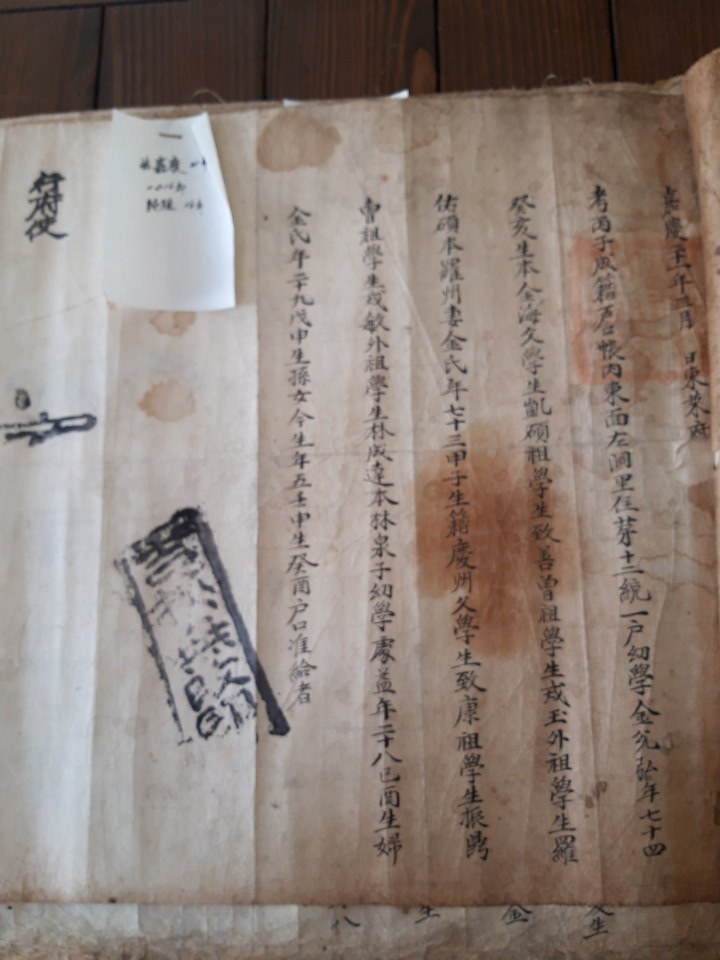 嘉慶二十一年三月 日東萊府
考丙子成籍戶口帳內東面左洞里住第十二統一戶幼學金允弘年七十四
癸亥生本金海父學生凱碩祖學生致善曾祖學生戎玉外祖學生羅
佑碩本羅州妻金氏年七十三甲子生籍慶州父學生致康祖學生振鼎
曾祖學生戎敏外祖學生林成達本林泉子幼學處益年二十八己酉生婦
金氏年二十九戊申生孫女今生年五壬申生癸酉戶口准給者
嘉慶
改印
行府使
生
金
生
八